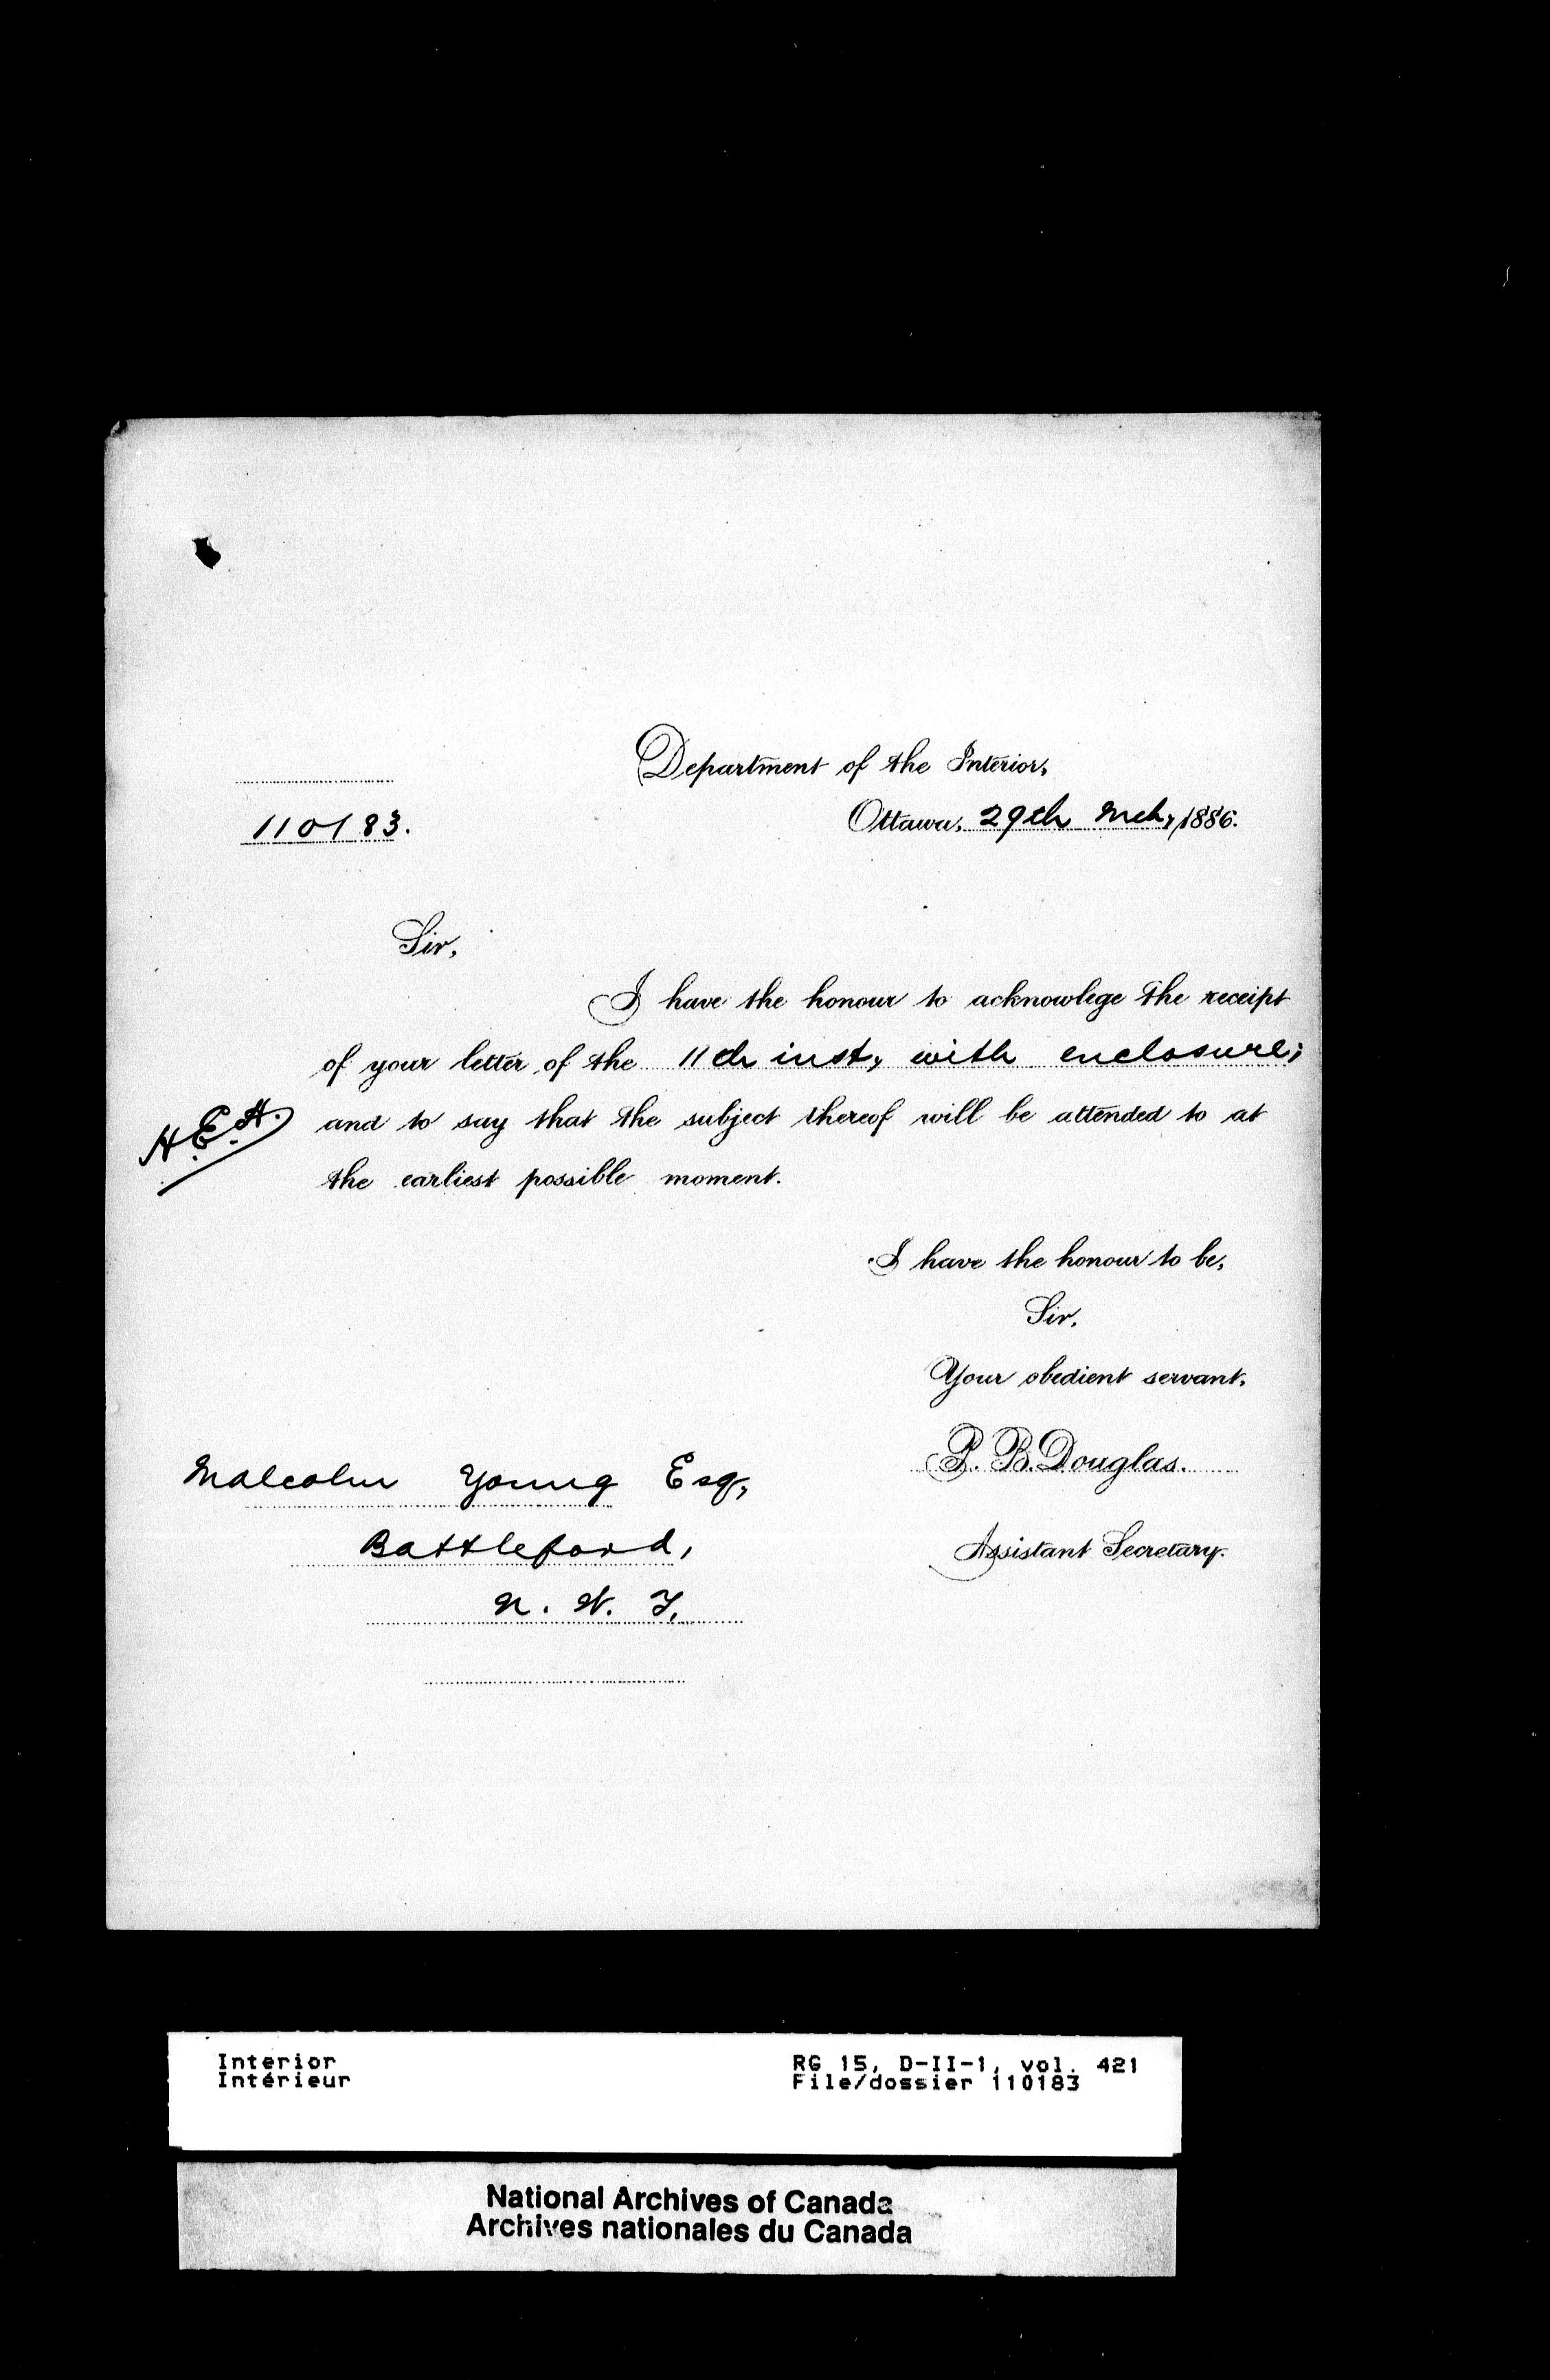 Department of the Interior,
110183.
Ottawa, 29th Mch, 1886.
Sir,
I have the honour to acknowlege the receipt
of your letter of the 11th inst, with enclosure;
and to say that the subject thereof will be attended to at
the earliest possible moment.
H.E.H.
I have the honour to be,
Sir,
Your obedient servant,
P. B. Douglas.
Assistant Secretary.
Malcolm Young Esq,
Battleford,
N. W. T.
Interior
Intérieur
RG 15, D-II-1, vol. 421
File/dossier 110183
National Archives of Canada
Archives nationales du Canada